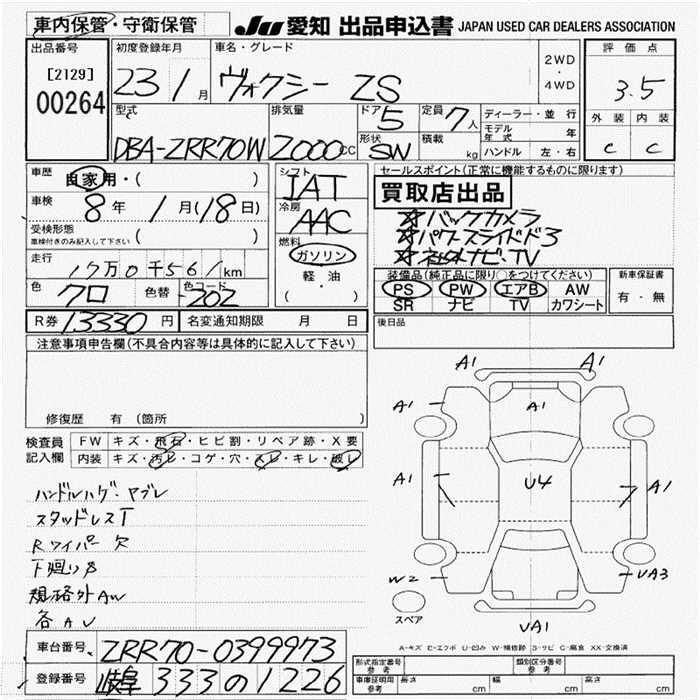 車内保管・守衛保管
JU 愛知 出品申込書 JAPAN USED CAR DEALERS ASSOCIATION
出品番号
[2129]
00264
初度登録年月
23 / 月
車名・グレード
ヴォクシー ZS
2WD
・
4WD
評価点
3.5
外装 内装
C C
型式
DBA-ZRR70W
排気量
2000cc
ドア 5
形状 SW
定員 7人
積載 kg
ディーラー・並行
モデル年式 年
ハンドル 左・右
車歴 自家用・( )
車検 8年 1月(18日)
受検形態
車検付きのみ記入して下さい ( )
走行 17万0千561km
色 クロ 色替 色コード 202
シフト IAT
冷房 AAC
燃料
ガソリン
軽・油
( )
セールスポイント(正常に機能するものに限ります)
買取店出品
☆バックカメラ
☆パワースライドド3
☆社外ナビ・TV
装備品(純正品に限り○をつけてください)
PS PW エアB AW
SR ナビ TV カワシート
新車保証書
有・無
R券 13330円 名変通知期限 月 日
後日品
注意事項申告欄(不具合内容等は具体的に記入して下さい)
修復歴 有 (箇所
検査員記入欄
FW キズ・飛石・ヒビ割・リペア跡・X要
内装 キズ・汚レ・コゲ・穴・スレ・キレ・破レ
ハンドルハゲ・ヤブレ
スタッドレスT
Rワイパー欠
下廻りS
規格外AW
各AU
A1 A1
A1 A1
A1 U4 A1
W2 UA3
スペア
UA1
A-キズ E-エクボ U-凹み W-補修跡 S-サビ C-腐食 XX-交換済
車台番号 ZRR70-0399973
登録番号 岐阜 333 の 1226
形式指定番号 参考
類別区分番号 参考
車庫証明用 参考 長さ cm 幅 cm 高さ cm